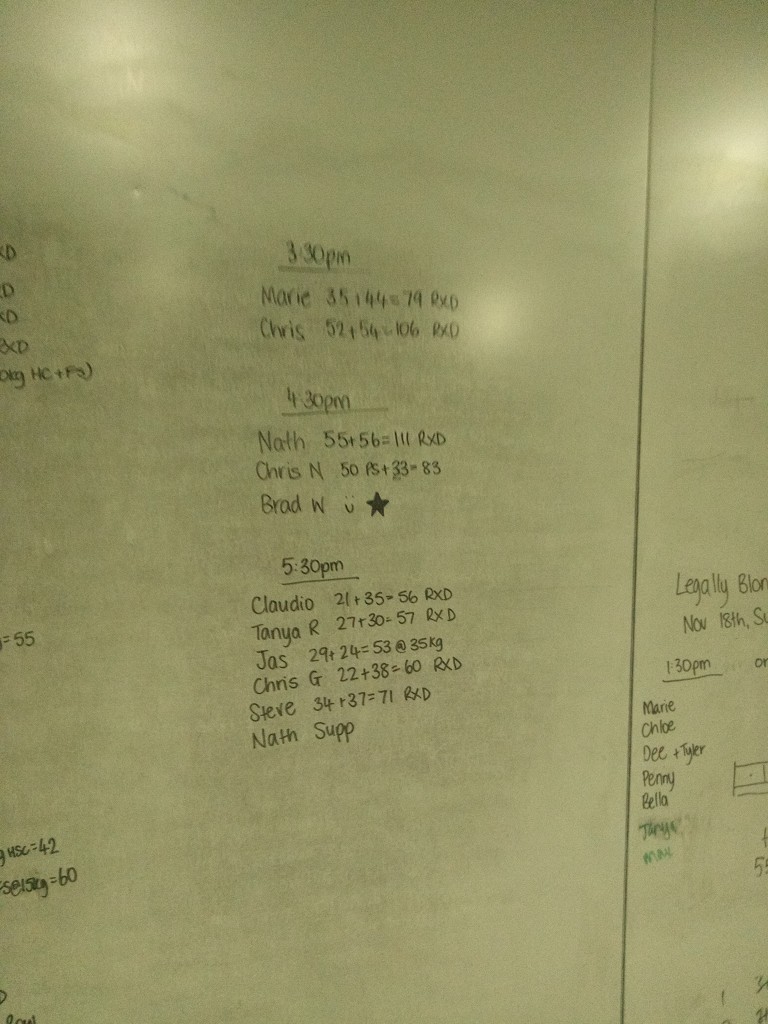 XD
XD
XD
RXD
0kg HC+FS)
=55
g HSC=42
=60
3:30pm
Marie 35+44=79 RXD
Chris 52+54=106 RXD
4:30pm
Nath 55+56=111 RXD
Chris N 50 PS+33=83
Brad W ü ★
5:30pm
Claudio 21+35=56 RXD
Tanya R 27+30=57 RXD
Jas 29+24=53 @ 35kg
Chris G 22+38=60 RXD
Steve 34+37=71 RXD
Nath Supp
Legally Blon
Nov 18th, Su
1:30pm or
Marie
Chloe
Dee + Tyler
Penny
Bella
Tanya
max
55
1